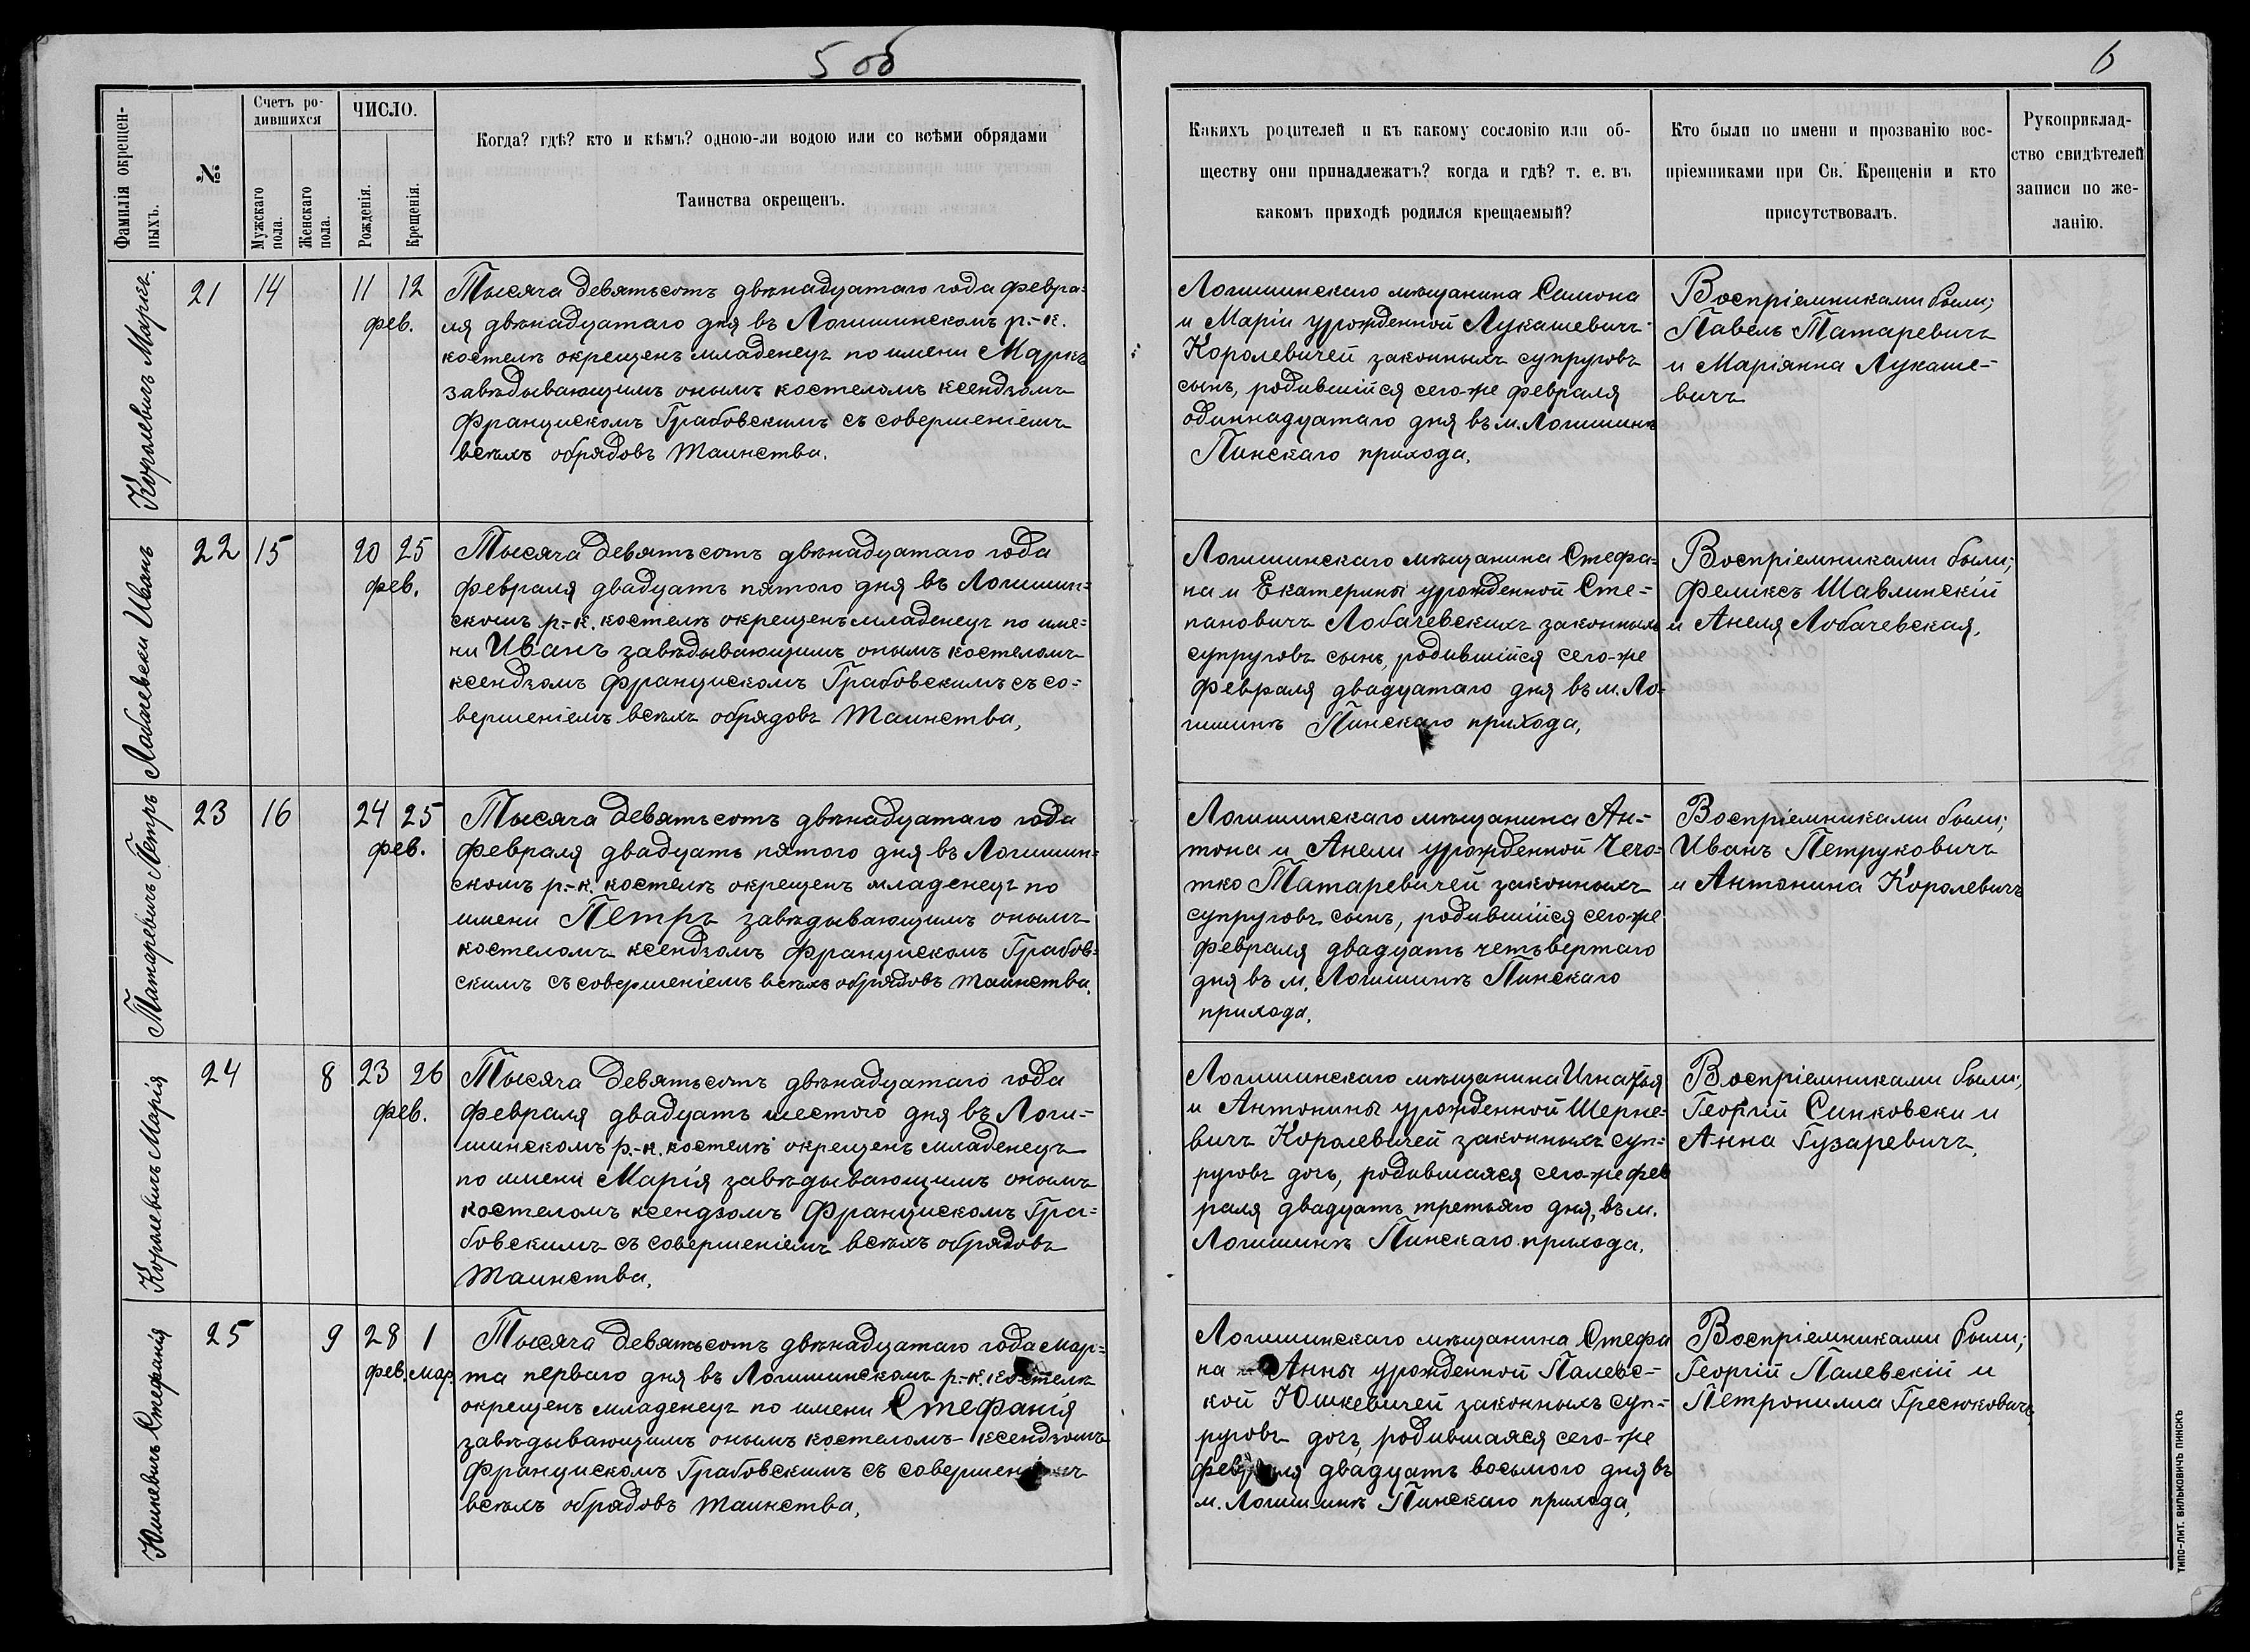 5 об
6
Фамилія окрещен-
ныхъ.
№
Счетъ ро-
дившихся
Мужскаго
пола.
Женскаго
пола.
ЧИСЛО.
Рожденія.
Крещенія.
Когда? гдѣ? кто и кѣмъ? одною-ли водою или со всѣми обрядами
Таинства окрещенъ.
Какихъ родителей и къ какому сословію или об-
ществу они принадлежатъ? когда и гдѣ? т. е. въ
какомъ приходѣ родился крещаемый?
Кто были по имени и прозванію вос-
пріемниками при Св. Крещеніи и кто
присутствовалъ.
Рукоприклад-
ство свидѣтелей
записи по же-
ланію.
Королевичъ Маркъ.
21
14
11 12
фев.
Тысяча девятьсотъ двѣнадцатаго года февра=
ля двѣнадцатаго дня въ Логишинскомъ р.-к.
костелѣ окрещенъ младенецъ по имени Маркъ
завѣдывающимъ онымъ костеломъ ксендзомъ
Францискомъ Грабовскимъ съ совершеніемъ
всѣхъ обрядовъ таинства.
Логишинскаго мѣщанина Самона
и Маріи урожденной Лукашевичъ
Королевичей законныхъ супруговъ
сынъ, родившійся сего-же февраля
одиннадцатаго дня въ м. Логишинѣ
Пинскаго прихода.
Воспріемниками были;
Павелъ Татаревичъ
и Маріянна Лукаше-
вичъ
Лобачевски Иванъ
22
15
20 25
фев.
Тысяча девятьсотъ двѣнадцатаго года
февраля двадцать пятого дня въ Логишин=
скомъ р.-к. костелѣ окрещенъ младенецъ по име=
ни Иванъ завѣдывающимъ онымъ костеломъ
ксендзомъ Францискомъ Грабовскимъ съ со=
вершеніемъ всѣхъ обрядовъ таинства,
Логишинскаго мѣщанина Стефа=
на и Екатерины урожденной Сте-
пановичъ Лобачевскихъ законныхъ
супруговъ сынъ, родившійся сего-же
февраля двадцатаго дня въ м. Ло-
гишинѣ Пинскаго прихода,
Воспріемниками были;
Феликсъ Шавлинскій
и Анеля Лобачевская,
Татаревичъ Петръ
23
16
24 25
фев.
Тысяча девятьсотъ двѣнадцатаго года
февраля двадцать пятого дня въ Логишин=
скомъ р.-к. костелѣ окрещенъ младенецъ по
имени Петръ завѣдывающимъ онымъ
костеломъ ксендзомъ Францискомъ Грабов=
скимъ съ совершеніемъ всѣхъ обрядовъ таинства.
Логишинскаго мѣщанина Ан-
тона и Анели урожденной Чечо-
тко Татаревичей законныхъ
супруговъ сынъ, родившійся сего-же
февраля двадцать четьвертаго
дня въ м. Логишинѣ Пинскаго
прихода.
Воспріемниками были;
Иванъ Петруковичъ
и Антонина Королевичъ
Королевичъ Марія
24
8
23 26
фев.
Тысяча девятьсотъ двѣнадцатаго года
февраля двадцать шестого дня въ Логи-
шинскомъ р.-к. костелѣ окрещенъ младенецъ
по имени Марія завѣдывающимъ онымъ
костеломъ ксендзомъ Францискомъ Гра=
бовскимъ съ совершеніемъ всѣхъ обрядовъ
таинства.
Логишинскаго мѣщанина Игнатья
и Антонины урожденной Шерне-
вичъ Королевичей законныхъ суп=
руговъ дочь, родившаяся сего-же фев
раля двадцать третьяго дня, въ м.
Логишинѣ Пинскаго прихода.
Воспріемниками были;
Георгій Синковски и
Анна Гузаревичъ,
Юшкевичъ Стефанія
25
9
28 1
фев. мар.
Тысяча девятьсотъ двѣнадцатаго года мар=
та перваго дня въ Логишинскомъ р.-к. костелѣ
окрещенъ младенецъ по имени Стефанія
завѣдывающимъ онымъ костеломъ ксендзомъ
Францискомъ Грабовскимъ съ совершеніемъ
всѣхъ обрядовъ таинства,
Логишинскаго мѣщанина Стефа
на и Анны урожденной Палевс-
кой Юшкевичей законныхъ суп=
руговъ дочь, родившаяся сего-же
февраля двадцать восьмого дня въ
м. Логишинѣ Пинскаго прихода,
Воспріемниками были;
Георгій Палевскій и
Петронилла Гресюковичъ
ТИПО-ЛИТ. ВИЛЬКОВИЧЪ ПИНСКЪ